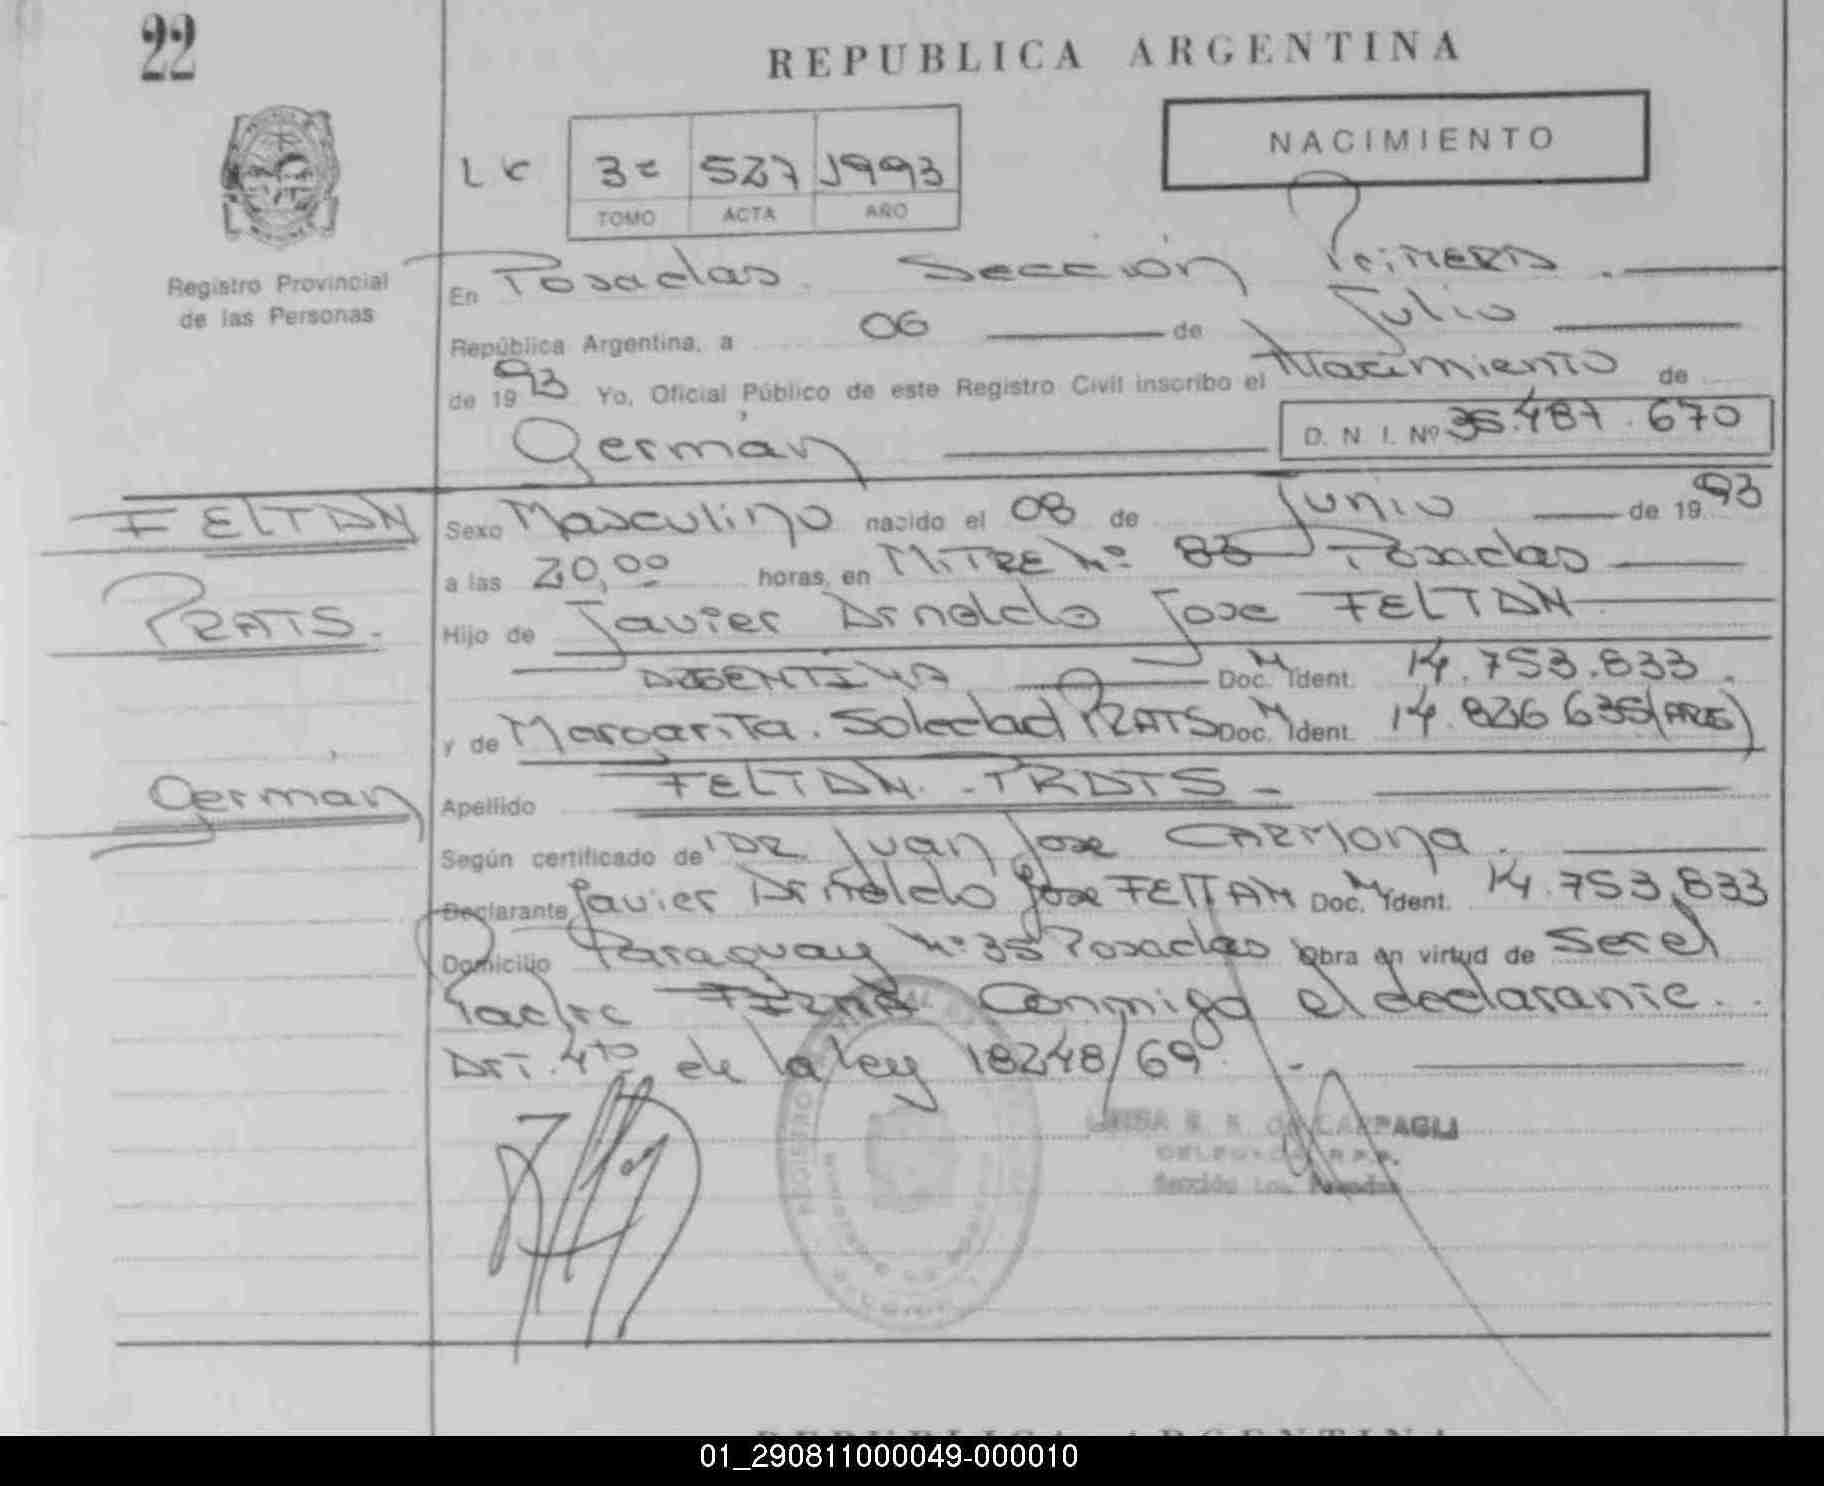 22
REPUBLICA ARGENTINA
NACIMIENTO
3º 527 1993
TOMO ACTA AÑO
Registro Provincial
de las Personas
En Posadas. Sección Primera.
República Argentina, a 06 de Julio
de 1993 Yo, Oficial Público de este Registro Civil inscribo el Nacimiento de
Germán D. N. I. Nº 35.487.670
FELTAN Sexo Masculino nacido el 08 de Junio de 1993
a las 20,00 horas, en MITRE Nº 83 Posadas
PRATS. Hijo de Javier Arnoldo Jose FELTAN
ARGENTINA Doc. M Ident. 14.753.833.
y de Margarita. Soledad PRATS Doc. M Ident. 14.826 635 (ARG)
Germán Apellido FELTAN - PRATS -
Según certificado de DR. Juan Jose CARMONA.
Declarante Javier Arnoldo Jose FELTAN Doc. M Ident. 14.753.833
Domicilio Paraguay Nº 35 Posadas Obra en virtud de Ser el
Padre FIRMA Conmigo el declarante.
Art. 4to de la ley 18248/69. -
REGISTRO
DELEGADA R.P.P.
Sección 1ra. Posadas
REPUBLICA ARGENTINA
01_290811000049-000010